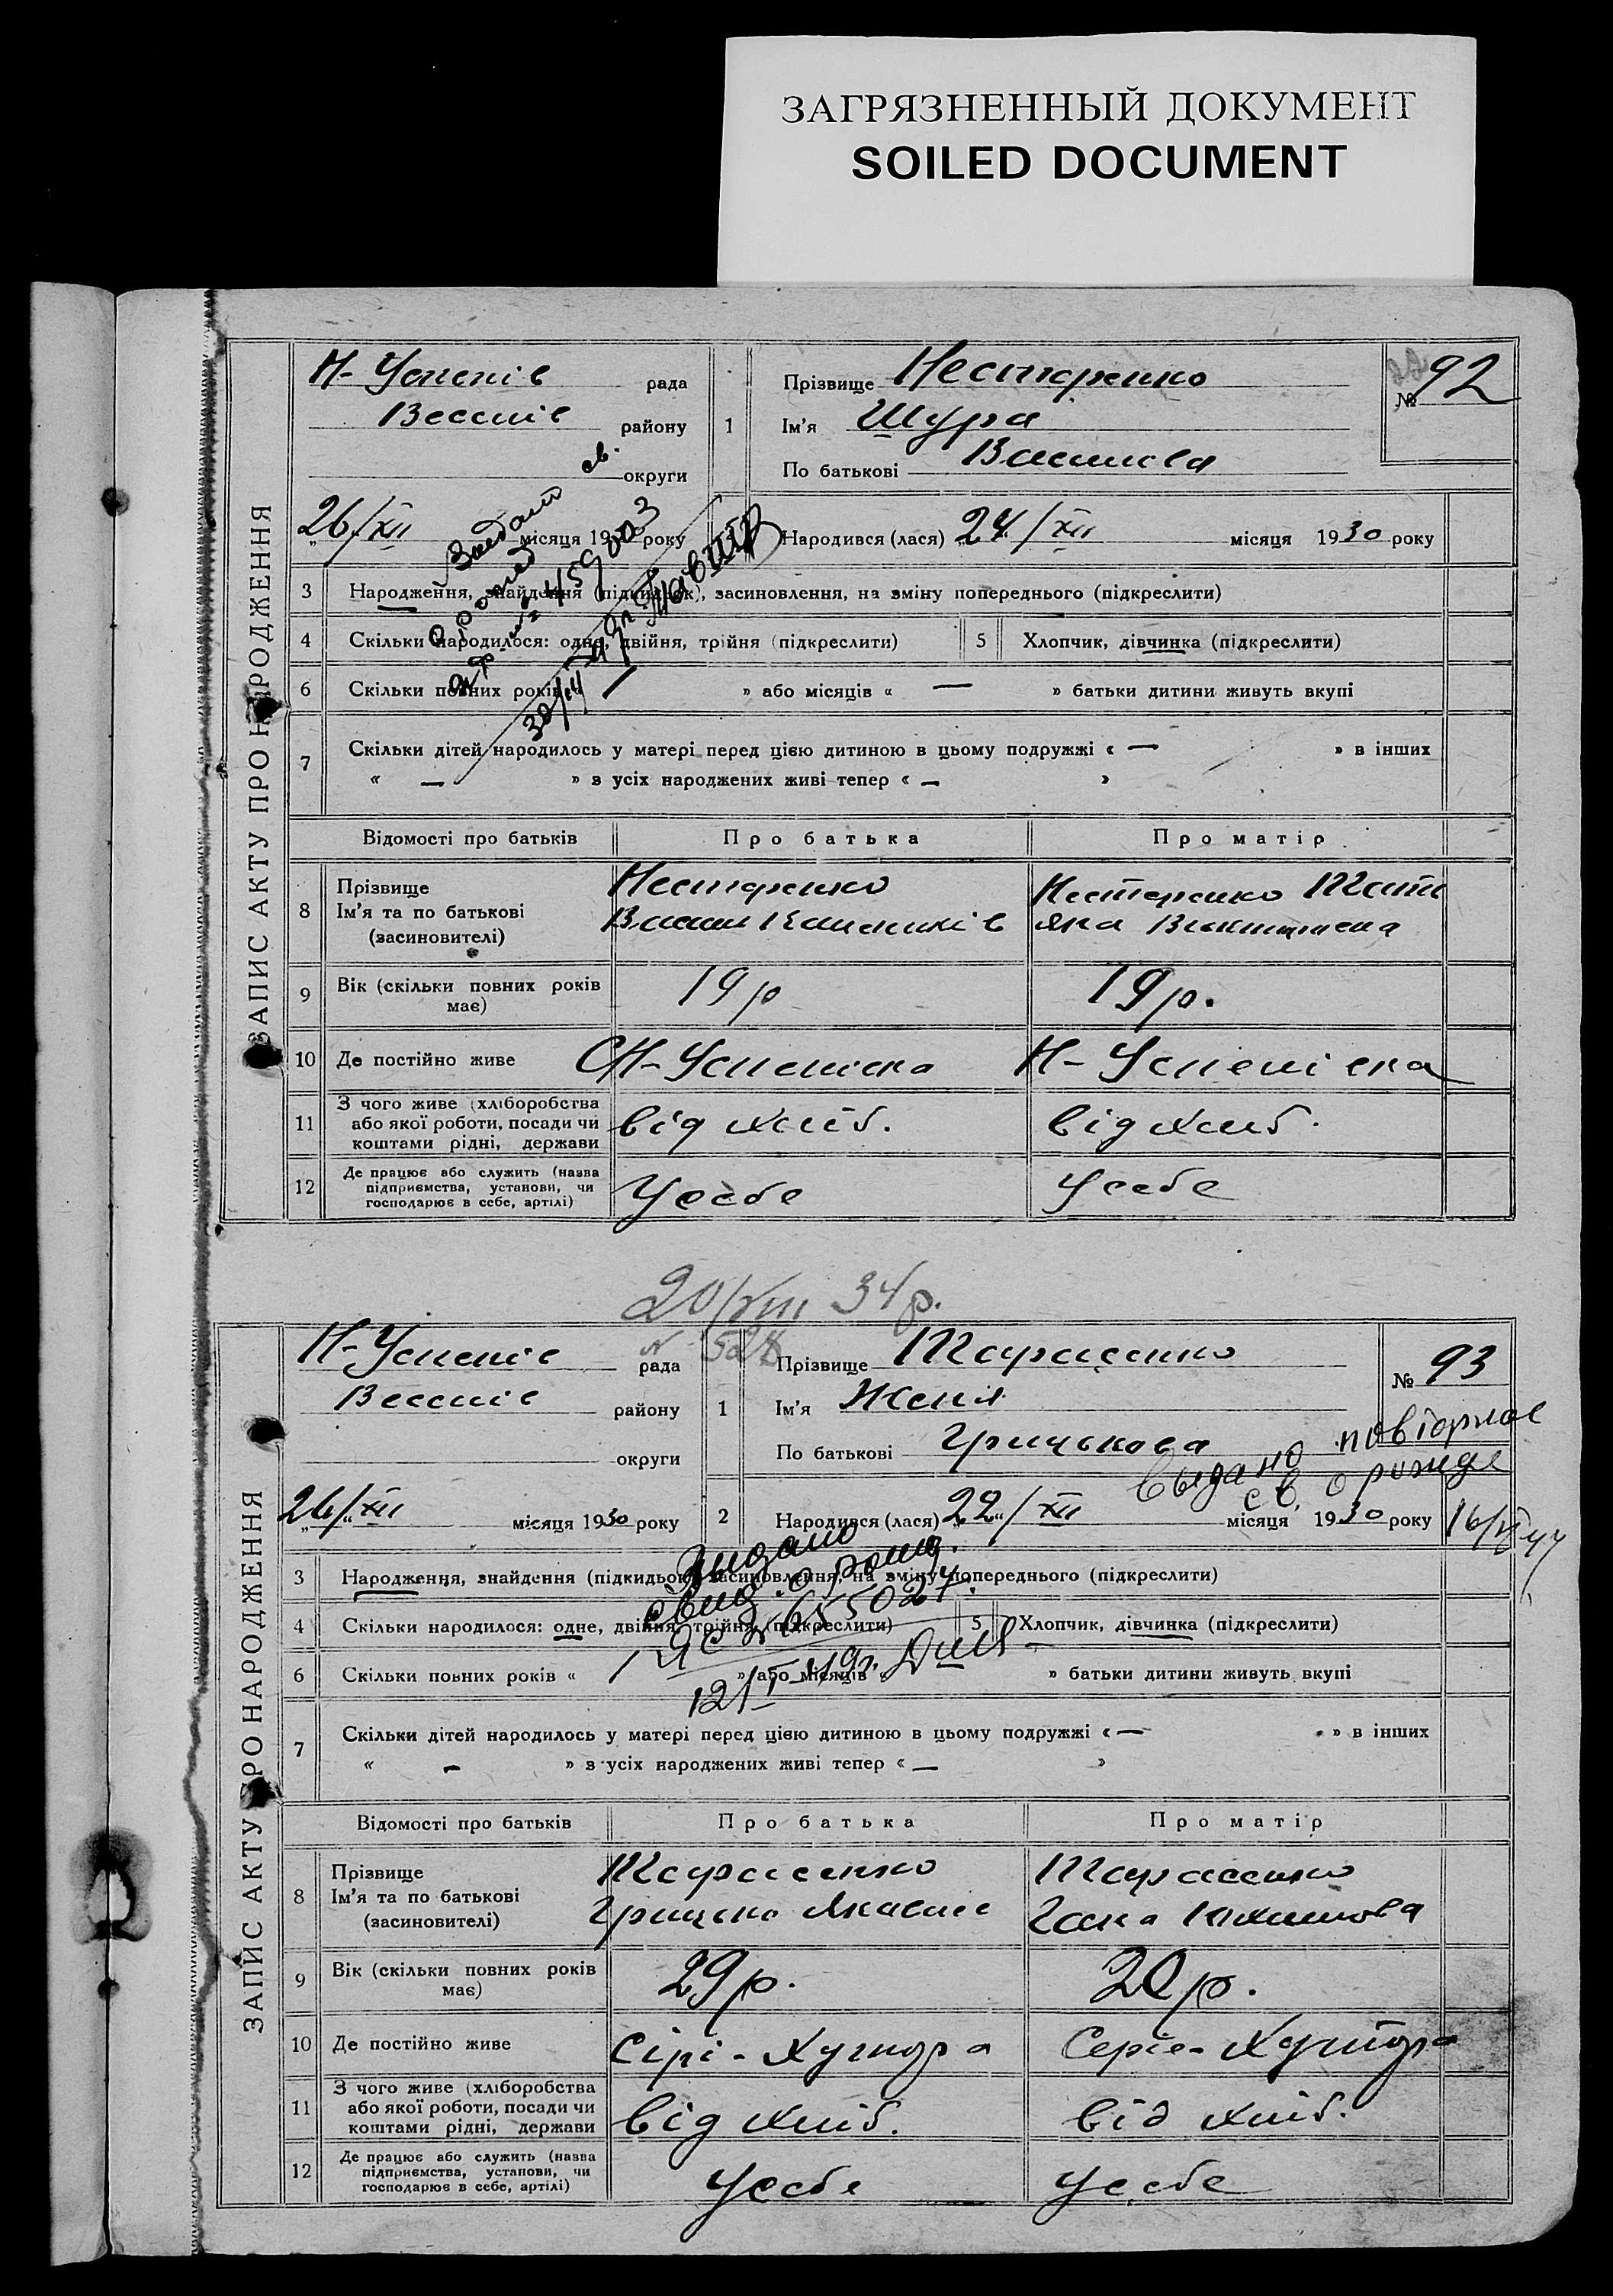 ЗАГРЯЗНЕННЫЙ ДОКУМЕНТ
SOILED DOCUMENT
ЗАПИС АКТУ ПРО НАРОДЖЕННЯ
Н-Успенів рада
Веселів району
округи
1
Прізвище Нестеренко
Ім'я Шура
По батькові Василева
№ 92
26/XII місяця 19 року
Народився (лася) 24/XII місяця 1930 року
3 Народження, знайдення (підкидьок), засиновлення, на зміну попереднього (підкреслити)
4 Скільки народилося: одне, двійня, трійня (підкреслити) 5 Хлопчик, дівчинка (підкреслити)
6 Скільки повних років — » або місяців « — » батьки дитини живуть вкупі
7 Скільки дітей народилось у матері перед цією дитиною в цьому подружжі « — » в інших
« — » з усіх народжених живі тепер « — »
св.
о рожд
№ 459003
Відомості про батьків Про батька Про матір
8 Прізвище Ім'я та по батькові (засновителі)
Нестеренко
Нестеренко Тать
яна
9 Вік (скільки повних років має) 19 р 19 р.
10 Де постійно живе СН-Успенівка Н-Успенівка
11 З чого живе (хліборобства або якої роботи, посади чи коштами рідні, держави від хліб. від хліб.
12 Де працює або служить (назва підприємства, установи, чи господарює в себе, артілі) У себе У себе
20/VIII 34 р.
N 528
ЗАПИС АКТУ ПРО НАРОДЖЕННЯ
Н-Успенів рада
Веселів району
округи
1
Прізвище Тарасенко
Ім'я Женя
По батькові Грицькова
№ 93
повторное
выдано св. о рожде
16/VI 44
26/XII місяця 1930 року
2 Народився (лася) „22“/XII місяця 1930 року
3 Народження, знайдення (підкидьок), засиновлення, на зміну попереднього (підкреслити)
4 Скільки народилося: одне, двійня, трійня (підкреслити) 5 Хлопчик, дівчинка (підкреслити)
6 Скільки повних років « » або місяців « — » батьки дитини живуть вкупі
Выдано
свид. о рожд.
655024
7 Скільки дітей народилось у матері перед цією дитиною в цьому подружжі « — » в інших
« — » з усіх народжених живі тепер « — »
Відомості про батьків Про батька Про матір
8 Прізвище Ім'я та по батькові (засиновителі)
Тарасенко Тарасенко
Грицько Ганна
9 Вік (скільки повних років має) 29 р. 20 р.
10 Де постійно живе Сірі-Хутора Серіє-Хутора
11 З чого живе (хліборобства або якої роботи, посади чи коштами рідні, держави від хліб. від хліб.
12 Де працює або служить (назва підприємства, установи, чи господарює в себе, артілі) У себе У себе